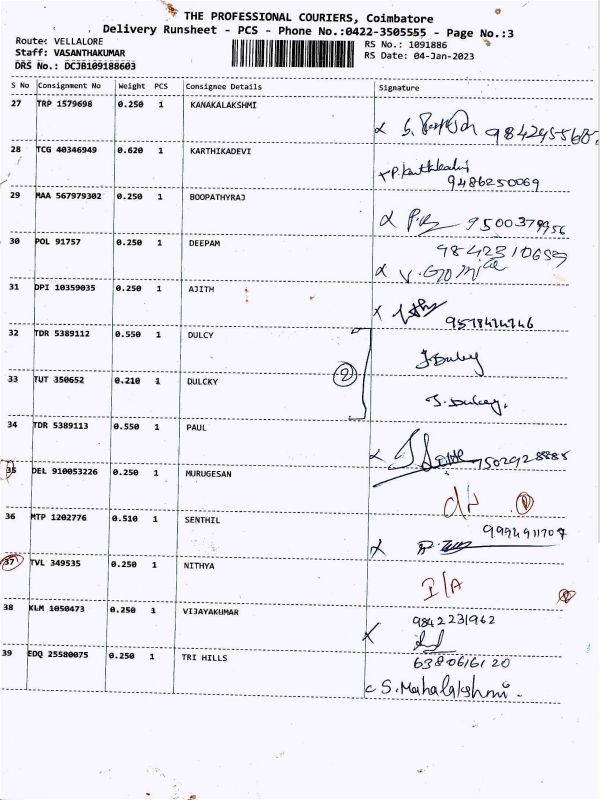 THE PROFESSIONAL COURIERS, Coimbatore
Delivery Runsheet - PCS - Phone No.:0422-3505555 - Page No.:3
Route: VELLALORE
RS No.: 1091886
Staff: VASANTHAKUMAR
RS Date: 04-Jan-2023
DRS No.: DCJB109188603
S No Consignment No Weight PCS Consignee Details Signature
27 TRP 1579698 0.250 1 KANAKALAKSHMI
28 TCG 40346949 0.620 1 KARTHIKADEVI
9486250069
29 MAA 567979302 0.250 1 BOOPATHYRAJ
9500379956
30 POL 91757 0.250 1 DEEPAM
31 DPI 10359035 0.250 1 AJITH
32 TDR 5389112 0.550 1 DULCY
J. Dulcy
2
33 TUT 350652 0.210 1 DULCKY
J. Dulcy.
34 TDR 5389113 0.550 1 PAUL
35 DEL 910053226 0.250 1 MURUGESAN
36 MTP 1202776 0.510 1 SENTHIL
9994911707
37 TVL 349535 0.250 1 NITHYA
I/A
38 KLM 1050473 0.250 1 VIJAYAKUMAR
9842231962
39 EDQ 25580075 0.250 1 TRI HILLS
6380616120
S. Mahalakshmi.